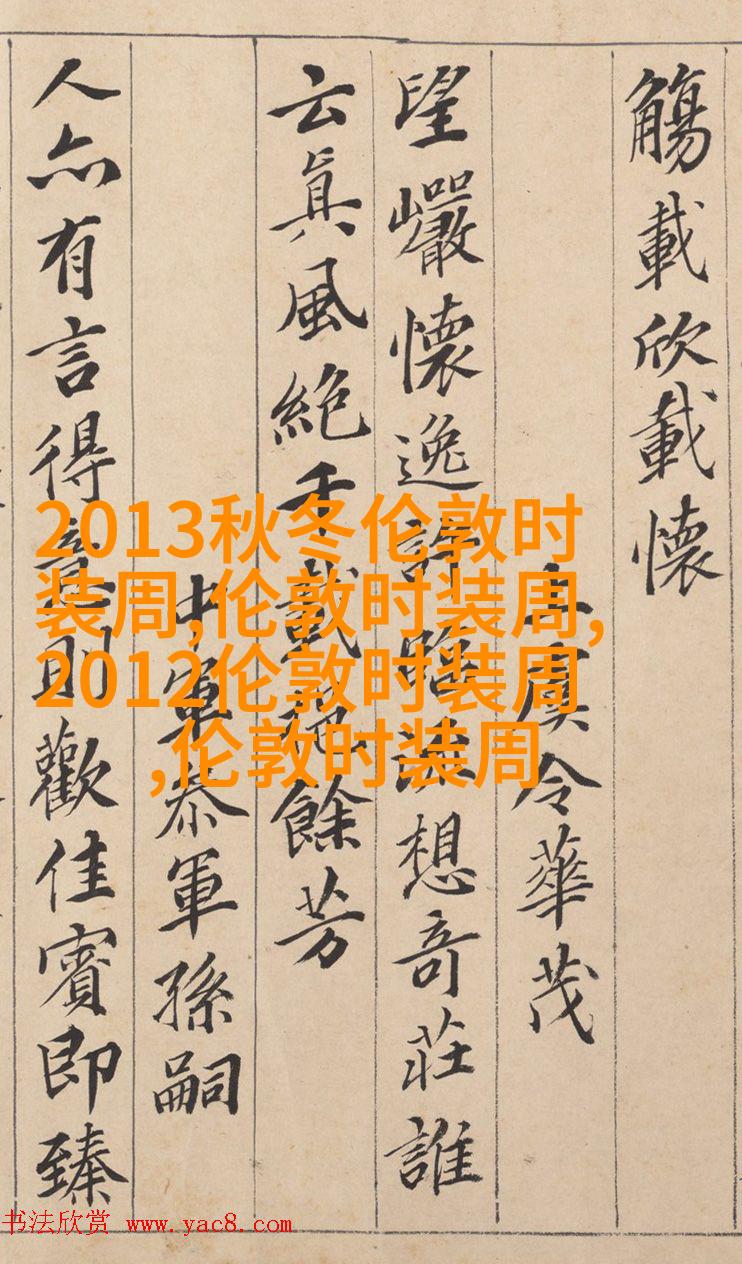 觴載欣載懷
上虞令華茂
望巖懷逸許臨流想奇莊誰
云眞風絶千載挹餘芳
中軍叅軍孫嗣
人亦有言得意則歡佳賓即臻
2013秋冬伦敦时
装周,伦敦时装周,
2012伦敦时装周
,伦敦时装周
书法欣赏 www.yac8.com